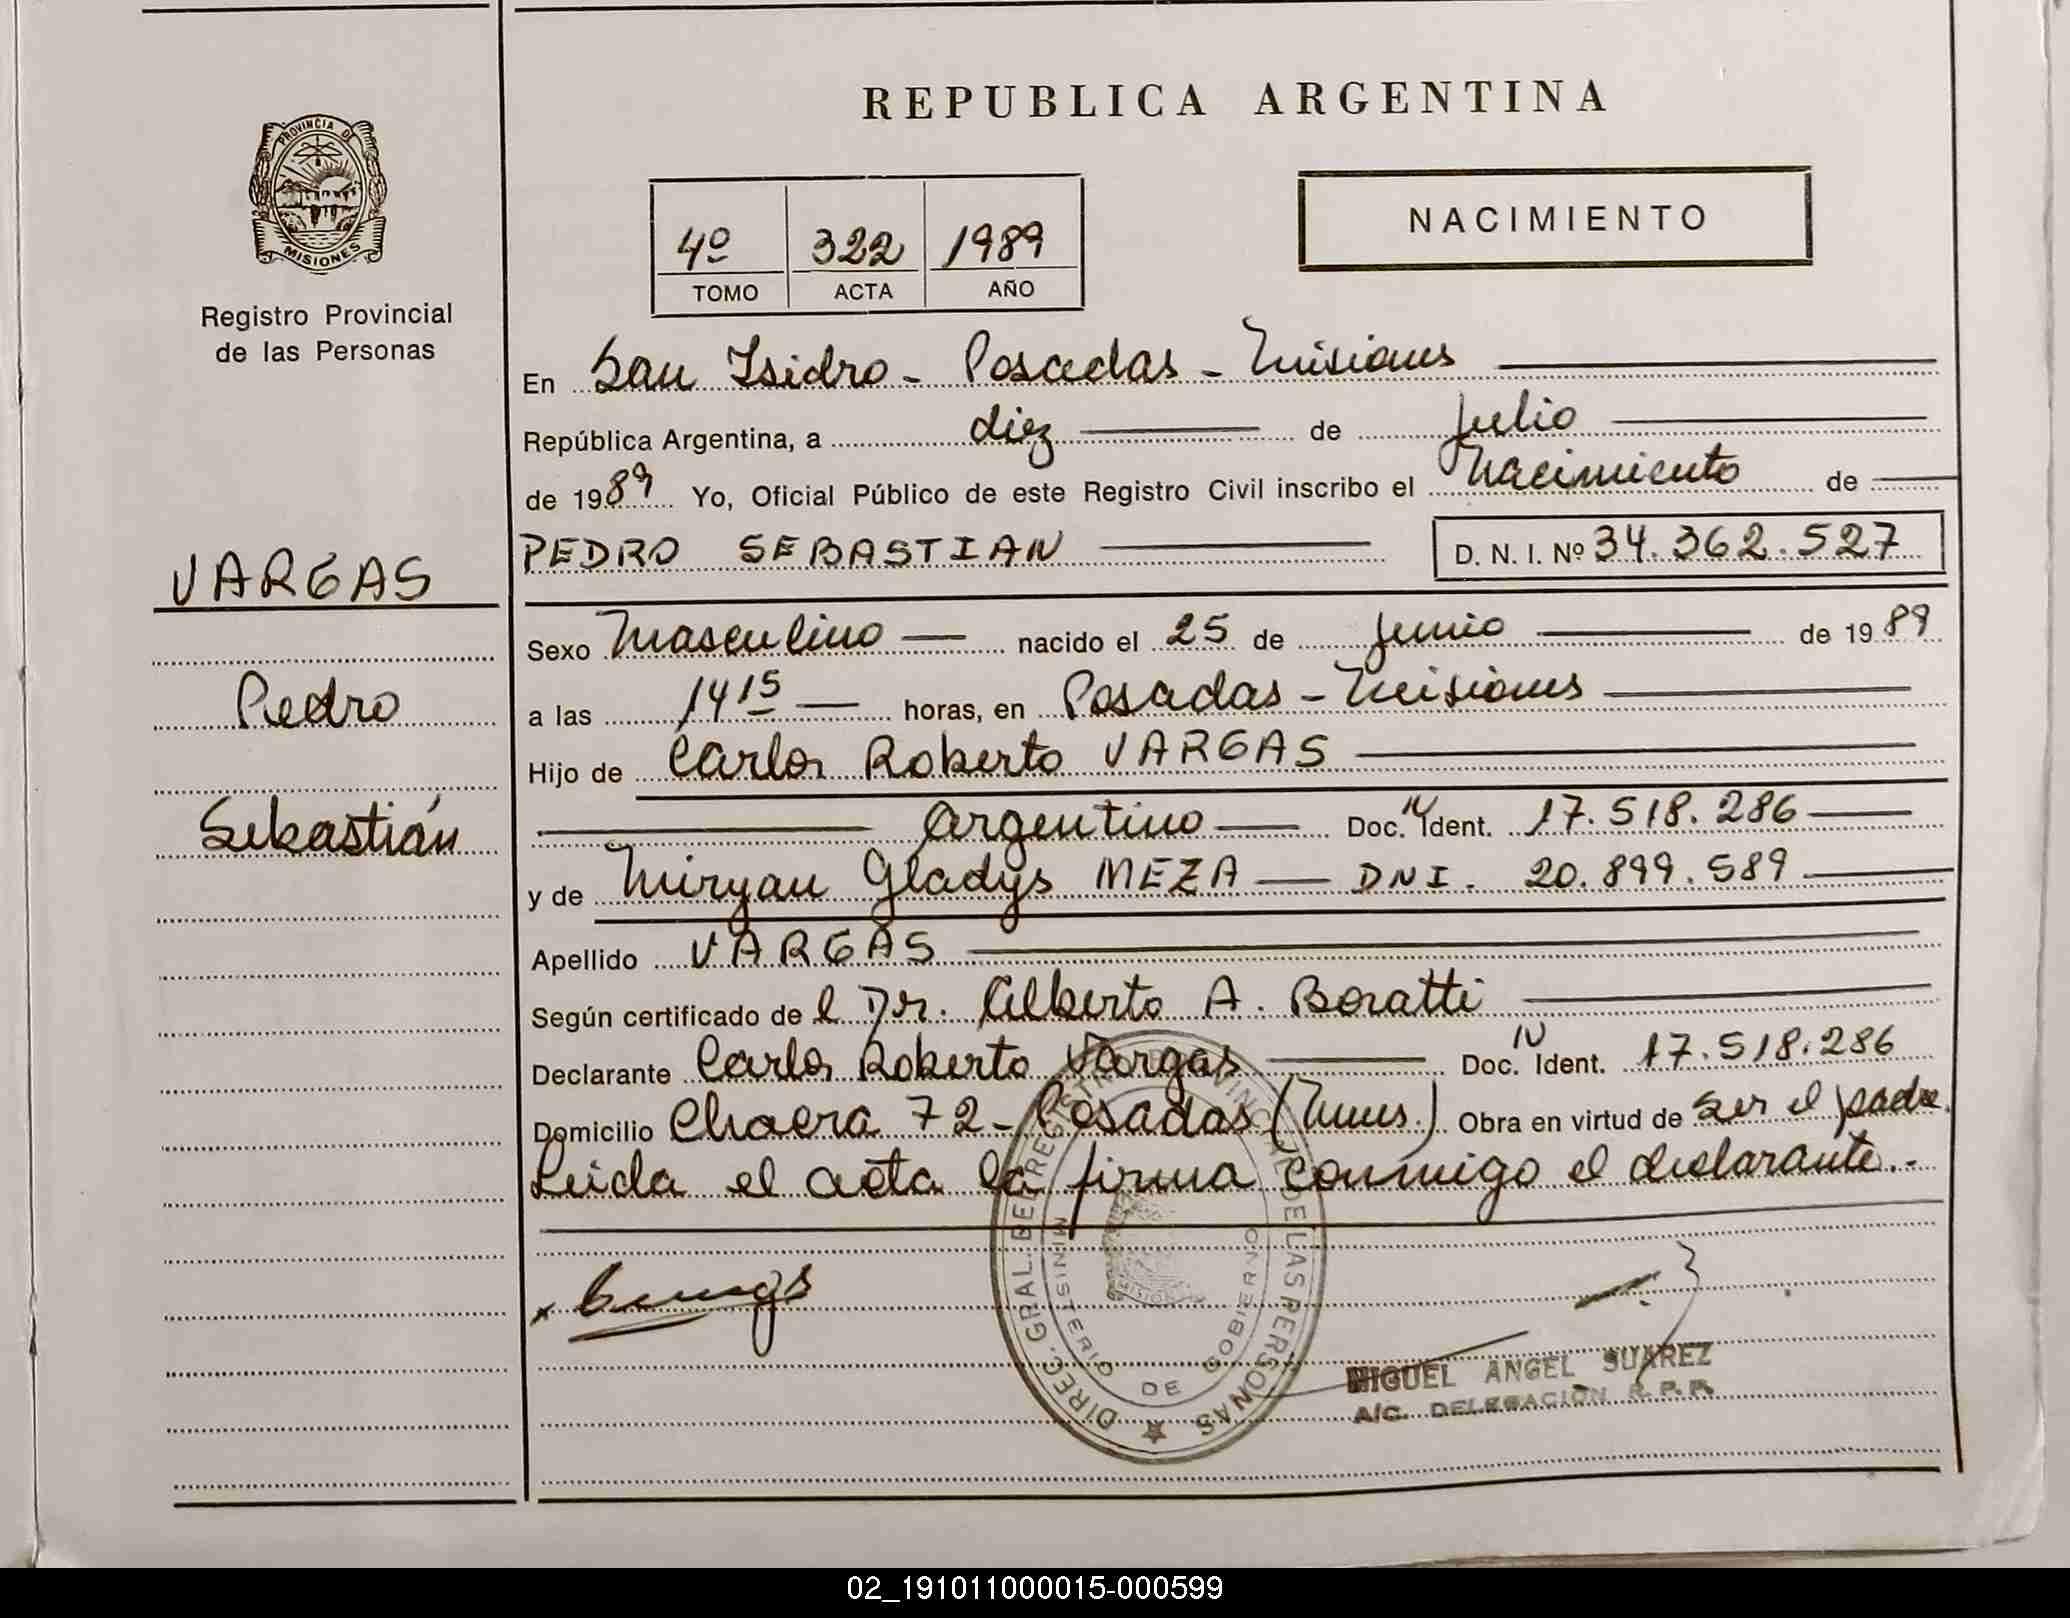 PROVINCIA DE
MISIONES
Registro Provincial
de las Personas
VARGAS
Pedro
Sebastián
REPUBLICA ARGENTINA
4º 322 1989
TOMO ACTA AÑO
NACIMIENTO
En San Isidro - Posadas - Misiones
República Argentina, a diez de Julio
de 1989 Yo, Oficial Público de este Registro Civil inscribo el Nacimiento de
PEDRO SEBASTIAN D. N. I. Nº 34.362.527
Sexo Masculino nacido el 25 de Junio de 1989
a las 14 15 horas, en Posadas - Misiones
Hijo de Carlos Roberto VARGAS
Argentino Doc. N Ident. 17.518.286
y de Miryan Gladys MEZA DNI. 20.899.589
Apellido VARGAS
Según certificado de l Dr. Alberto A. Boratti
Declarante Carlos Roberto Vargas Doc. N Ident. 17.518.286
Domicilio Chacra 72 - Posadas (Mnes.) Obra en virtud de ser el padre.
Leida el acta la firma conmigo el declarante.-
DIREC. GRAL. DEL REGISTRO PROVINCIAL DE LAS PERSONAS
MINISTERIO DE GOBIERNO
MISIONES
MIGUEL ANGEL SUAREZ
A/C. DELEGACIÓN R. P. P.
02_191011000015-000599